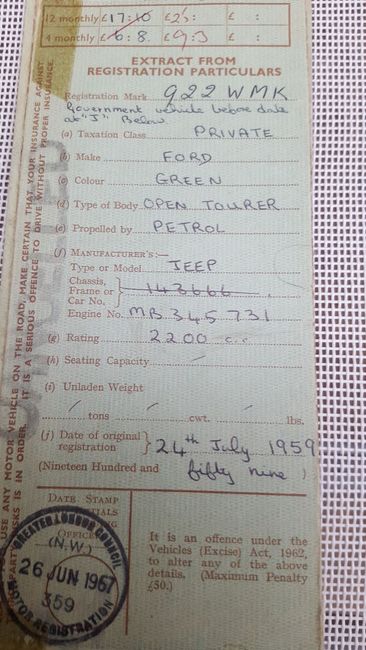 12 monthly £17:10 £25: £ :
4 monthly £6:8. £9:3 £ :
EXTRACT FROM
REGISTRATION PARTICULARS
Registration Mark 922 WMK
Government vehicle before date
at "J" Below
(a) Taxation Class PRIVATE
(b) Make FORD
(c) Colour GREEN
(d) Type of Body OPEN TOURER
(e) Propelled by PETROL
(f) MANUFACTURER'S:—
Type or Model JEEP
Chassis,
Frame or
Car No. 143666
Engine No. MB 345731
(g) Rating 2200 c.c.
(h) Seating Capacity
(i) Unladen Weight
tons cwt. lbs.
(j) Date of original
registration } 24th July 1959
(Nineteen Hundred and fifty nine )
DATE STAMP
OFFICE
GREATER LONDON COUNCIL
(N.W.)
26 JUN 1967
359
MOTOR REGISTRATION
It is an offence under the
Vehicles (Excise) Act, 1962,
to alter any of the above
details. (Maximum Penalty
£50.)
USE ANY MOTOR VEHICLE ON THE ROAD, MAKE CERTAIN THAT YOUR INSURANCE AGAINST
PARTY RISKS IS IN ORDER. IT IS A SERIOUS OFFENCE TO DRIVE WITHOUT PROPER INSURANCE.